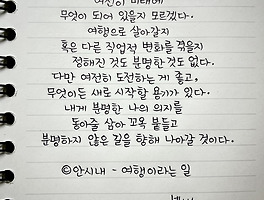 여전히 미래에
무엇이 되어 있을지 모르겠다.
여행으로 살아갈지
혹은 다른 직업적 변화를 겪을지
정해진 것도 분명한 것도 없다.
다만 여전히 도전하는 게 좋고,
무엇이든 새로 시작할 용기가 있다.
내게 분명한 나의 의지를
동아줄 삼아 꼬옥 붙들고
분명하지 않은 길을 향해 나아갈 것이다.
©안시내 - 여행이라는 일